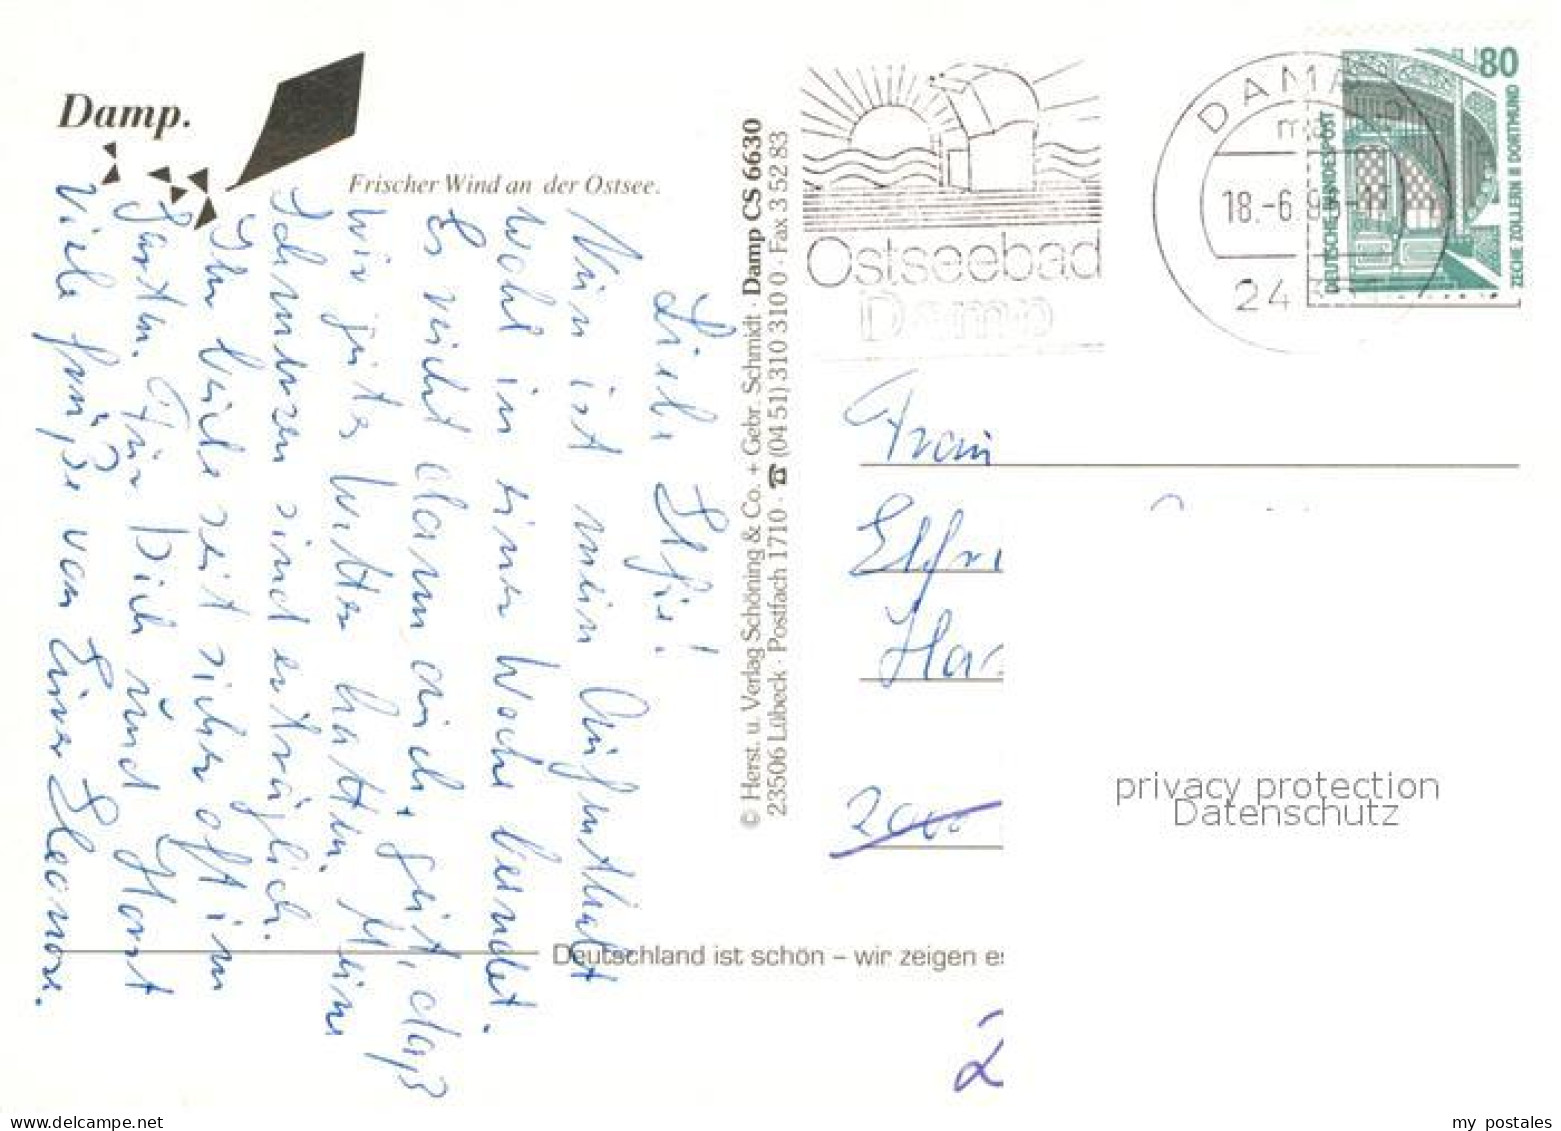 Damp.
Frischer Wind an der Ostsee.
Liebe Elfie!
Nun ist mein Aufenthalt
wohl in einer Woche beendet.
Es reicht dann auch, gut, daß
wir gutes Wetter hatten. Meine
Schmerzen sind erträglich.
Ihr beide seit sicher oft im
Garten. Für Dich und Horst
viele Grüße von Einer Eleonore.
© Herst. u. Verlag Schöning & Co. + Gebr. Schmidt · Damp CS 6630
23506 Lübeck · Postfach 1710 · ☎ (04 51) 310 310 0 · Fax 3 52 83
Ostseebad
Damp
DAMP
18.-6.9
24
80
DEUTSCHE BUNDESPOST
ZECHE ZOLLERN II DORTMUND
Frau
Elfri
Ha
2000
Deutschland ist schön – wir zeigen es
privacy protection
Datenschutz
my postales